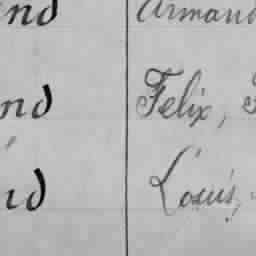 nd Armand
nd Felix,
nd Louis,